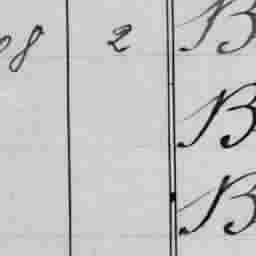 08 2 B
B
B